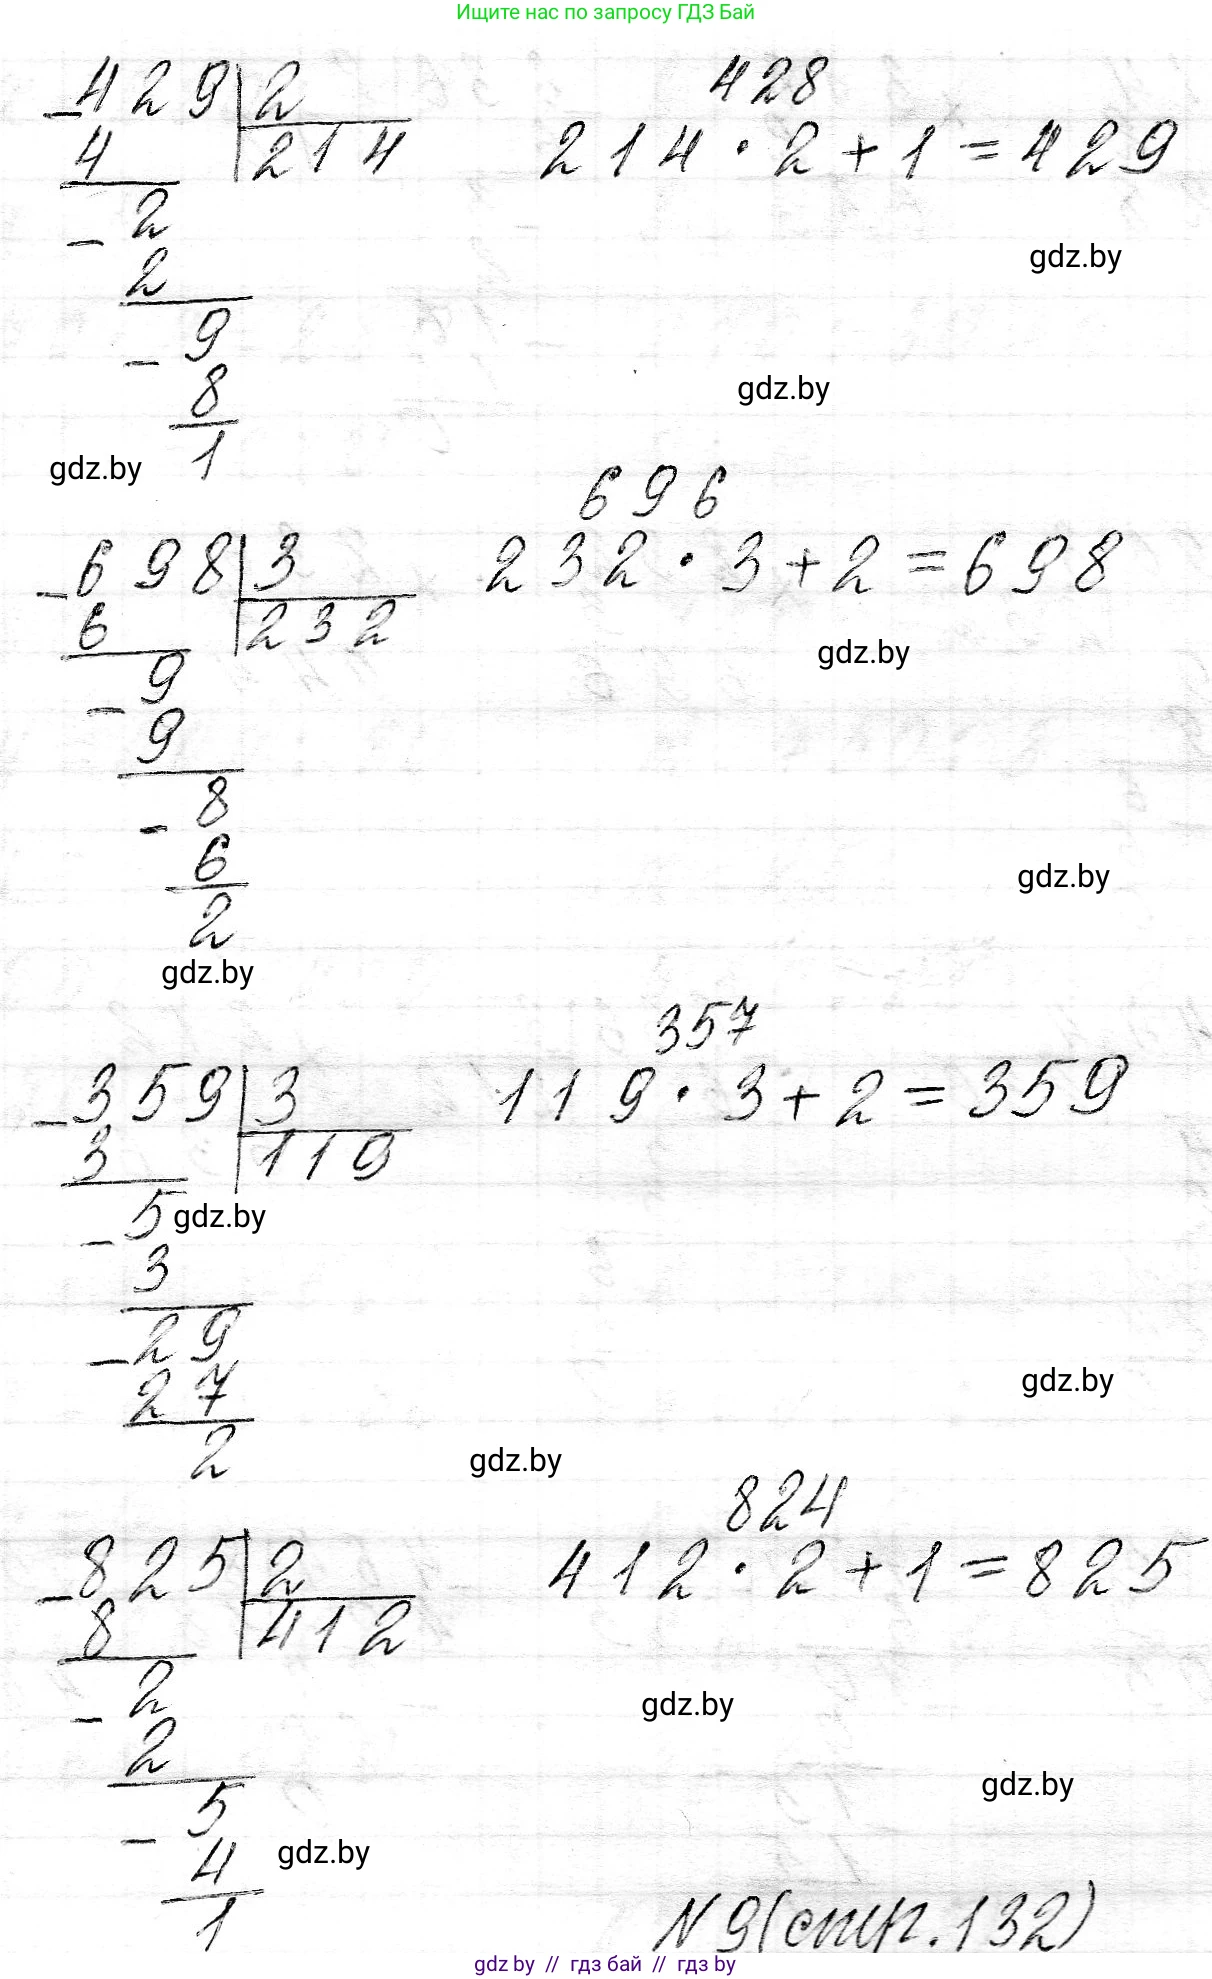 Ищите нас по запросу ГДЗ Бай
428
429 | 2
214 · 2 + 1 = 429
- 4 | 214
gdz.by
- 2
2
- 9
8
1
gdz.by
gdz.by
696
698 | 3
232 · 3 + 2 = 698
- 6 | 232
gdz.by
- 9
9
- 8
6
2
gdz.by
gdz.by
357
359 | 3
119 · 3 + 2 = 359
- 3 | 119
- 5
gdz.by
3
- 29
27
2
gdz.by
gdz.by
824
825 | 2
412 · 2 + 1 = 825
- 8 | 412
- 2
gdz.by
2
gdz.by
- 5
4
gdz.by
1
N 9 (стр. 132)
gdz by // гдз бай // гдз by